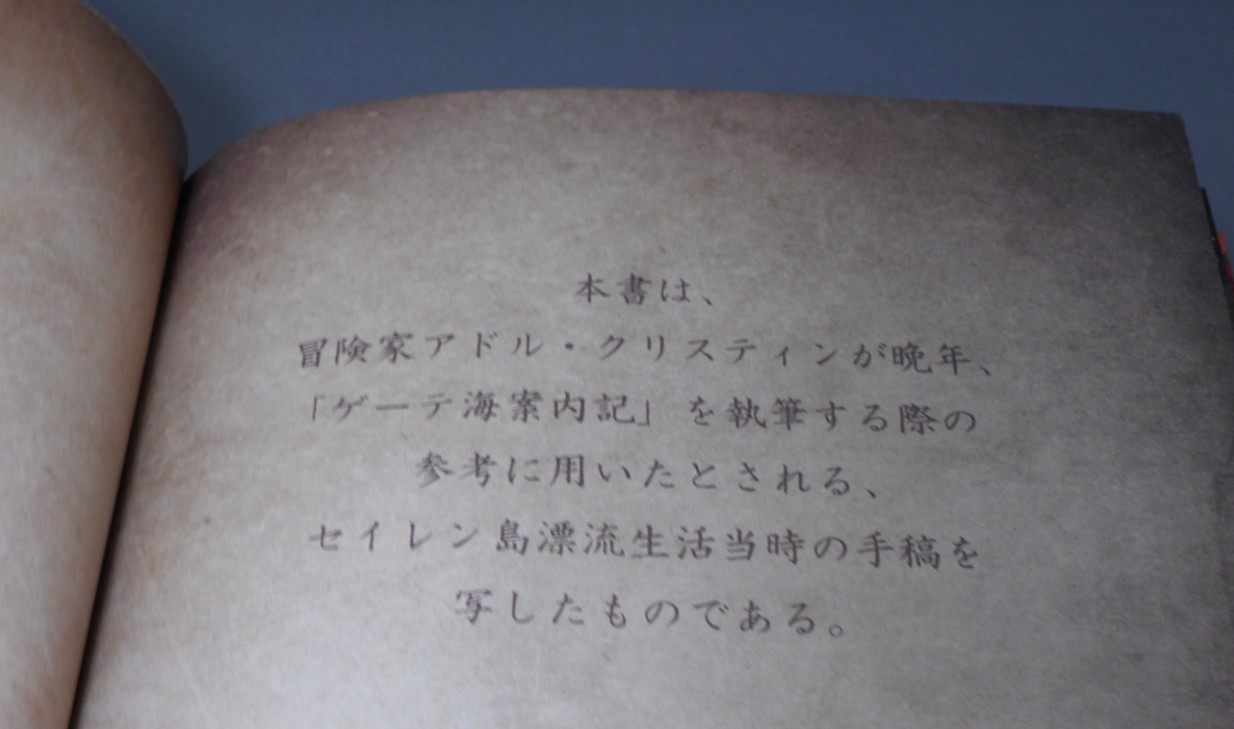 本書は、
冒険家アドル・クリスティンが晩年、
「ゲーテ海案内記」を執筆する際の
参考に用いたとされる、
セイレン島漂流生活当時の手稿を
写したものである。